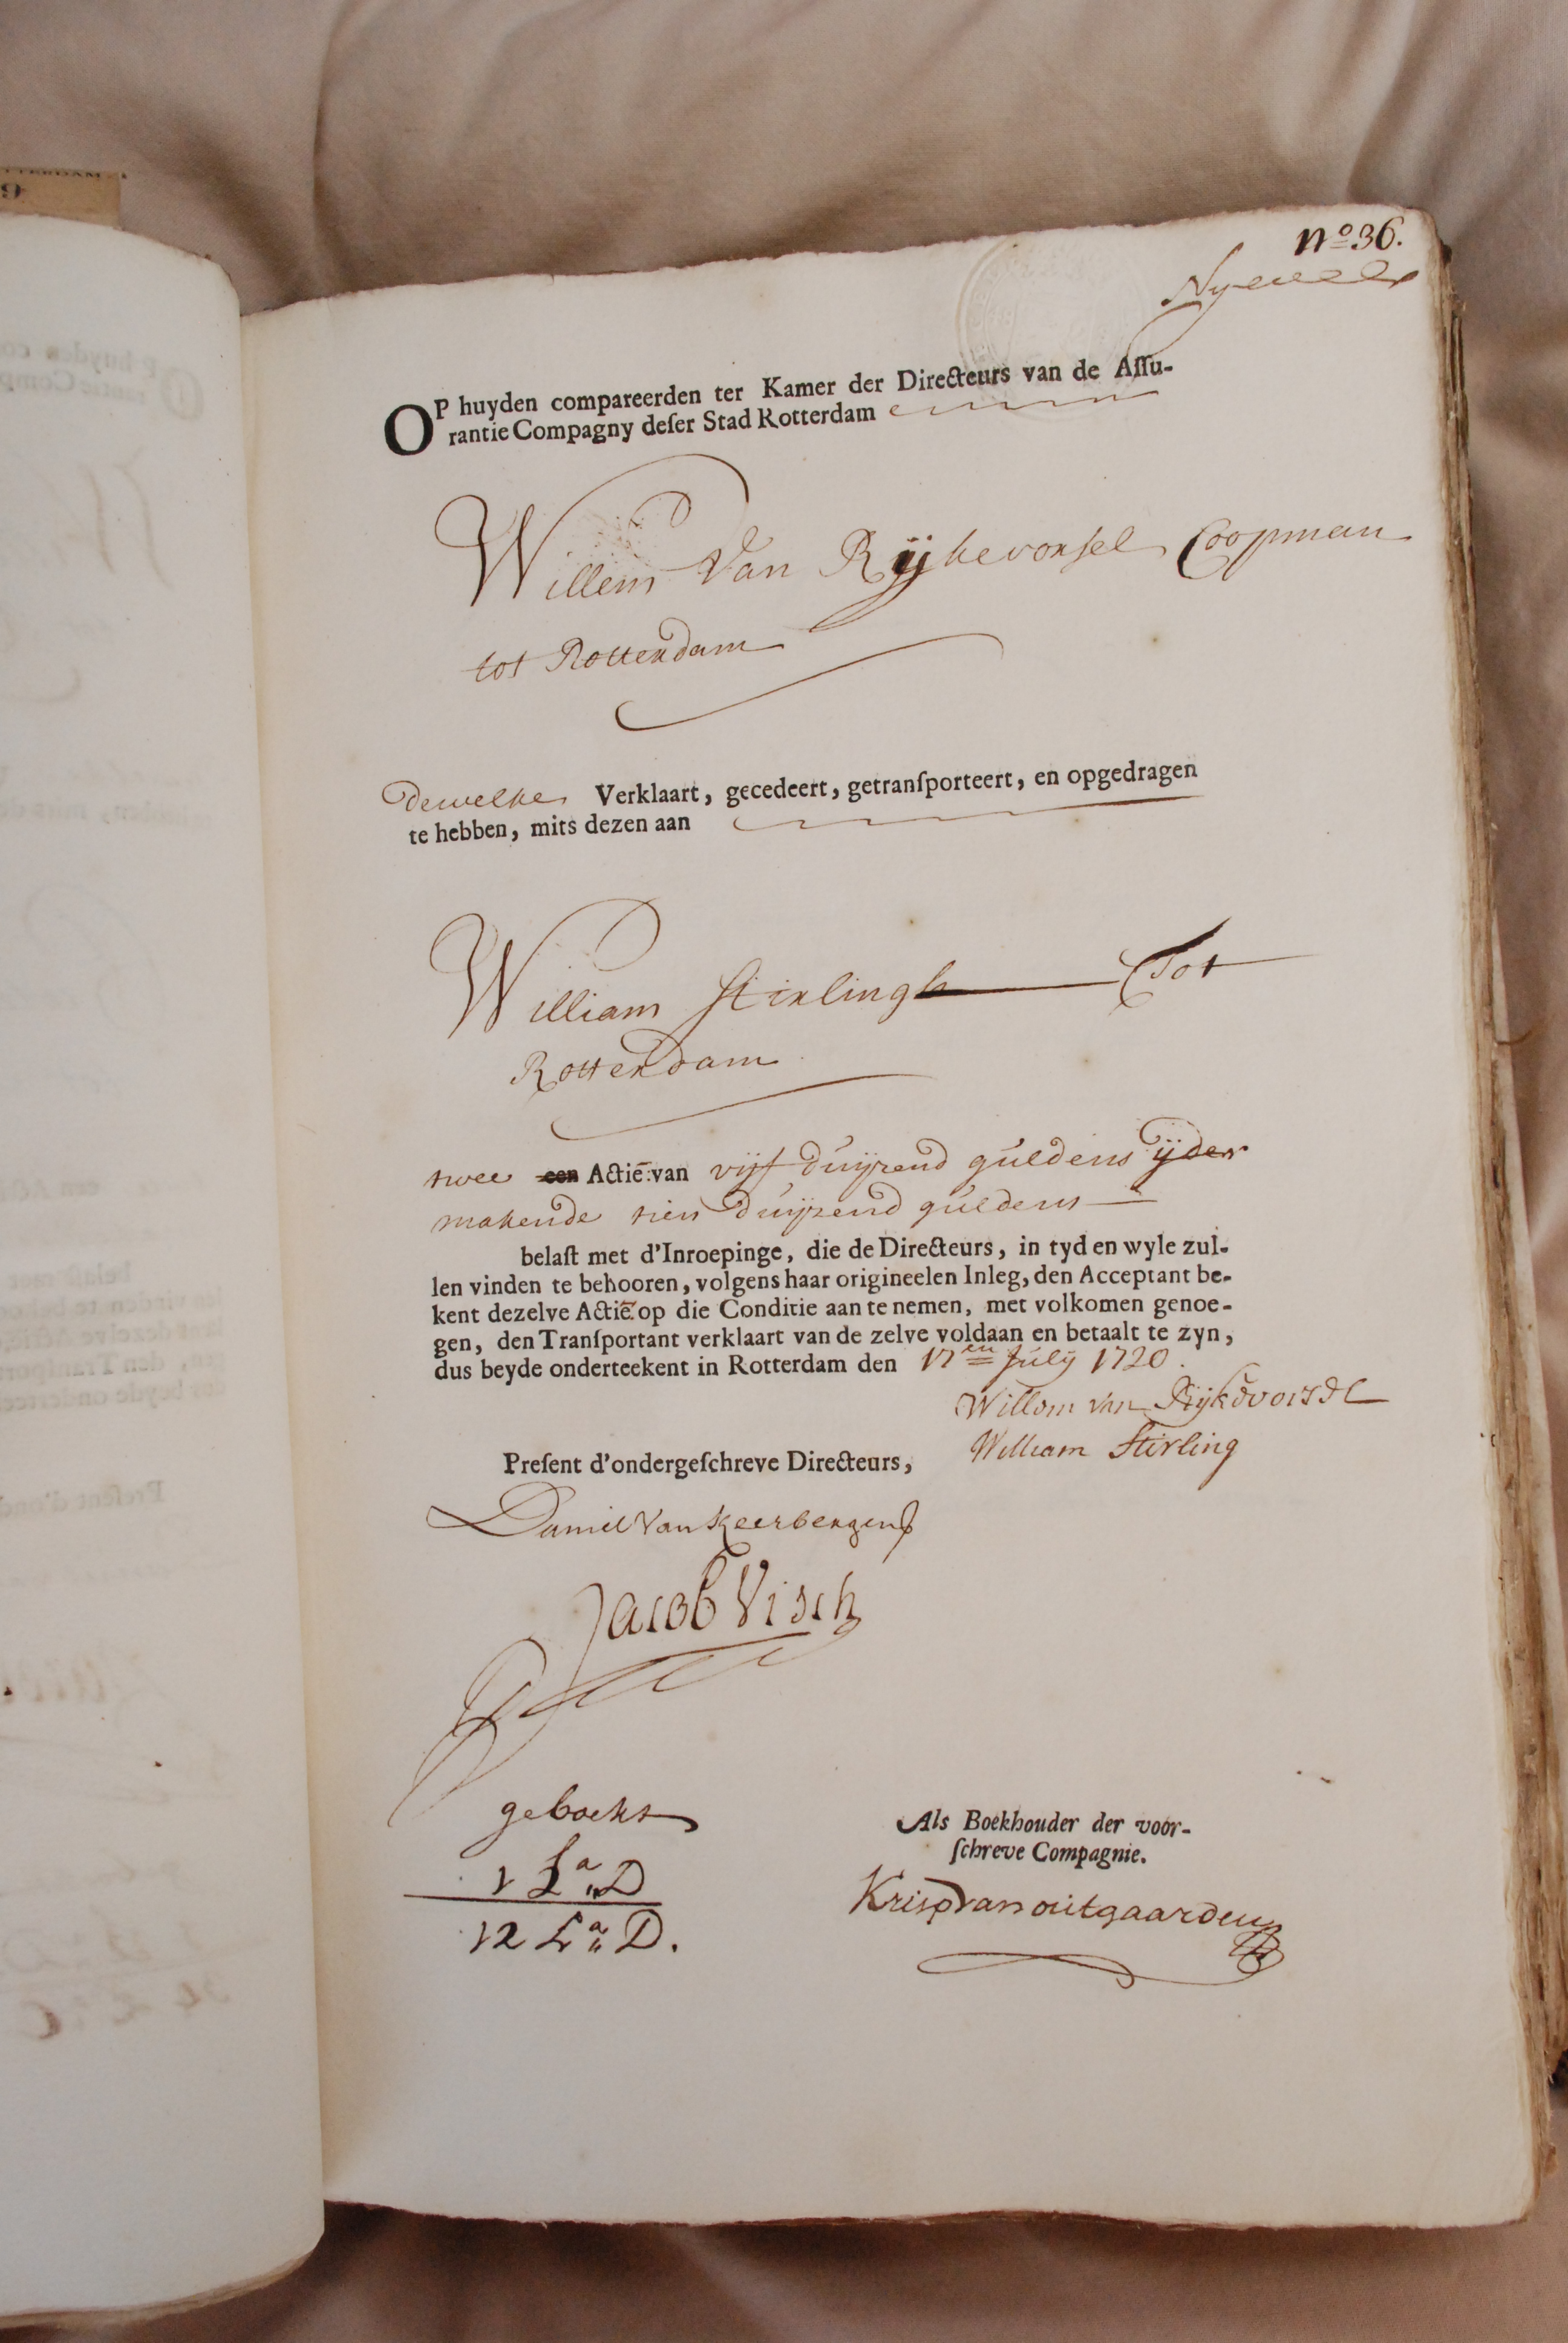 nº 36.
OP huyden compareerden ter Kamer der Directeurs van de Assu-
rantie Compagny deser Stad Rotterdam
Willem Van Rijkevorsel Coopman
tot Rotterdam
dewelke Verklaart, gecedeert, getransporteert, en opgedragen
te hebben, mits dezen aan
William Stirlingh Tot
Rotterdam
twee een Actiē van vijf duijzend guldens ijder
makende tien duijzend guldens
belast met d'Inroepinge, die de Directeurs, in tyd en wyle zul-
len vinden te behooren, volgens haar origineelen Inleg, den Acceptant be-
kent dezelve Actiē op die Conditie aan te nemen, met volkomen genoe-
gen, den Transportant verklaart van de zelve voldaan en betaalt te zyn,
dus beyde onderteekent in Rotterdam den 17en July 1720.
Willem van Rijkevorsel
William Stirling
Present d'ondergeschreve Directeurs,
Daniel Van Keerbergen
Jacob Visch
geboekt
1 La D
12 La D.
Als Boekhouder der voor-
schreve Compagnie.
Krisp van outgaarden